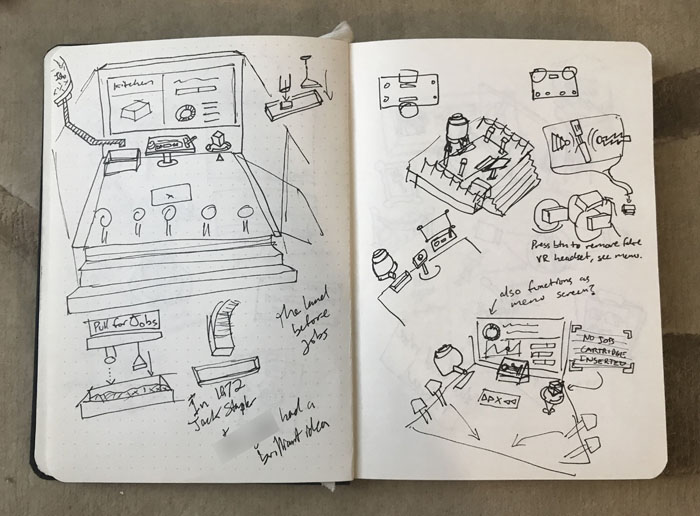 Kitchen
Pull for Jobs
The land
before
Jobs
In 1972
Jack
&
had a
brilliant idea
Press btn to remove
VR headset, see menu.
also functions as
menu screen?
NO JOB
CARTRIDGE
INSERTED